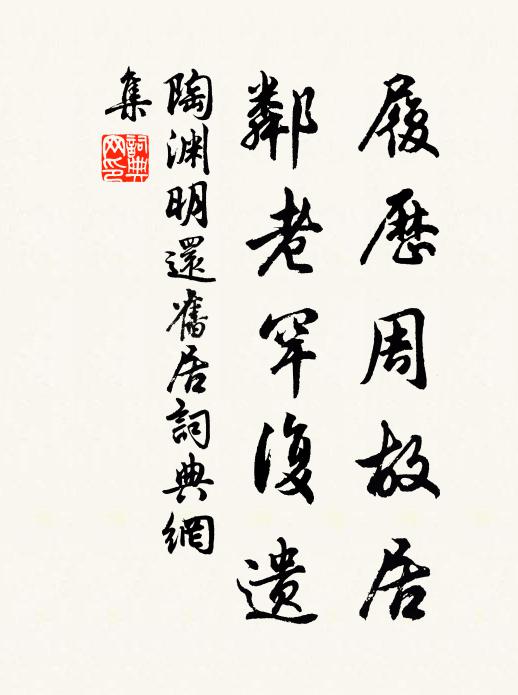 履歷周故居
鄰老罕復遺
陶淵明還舊居詞典網
集
詞典網印